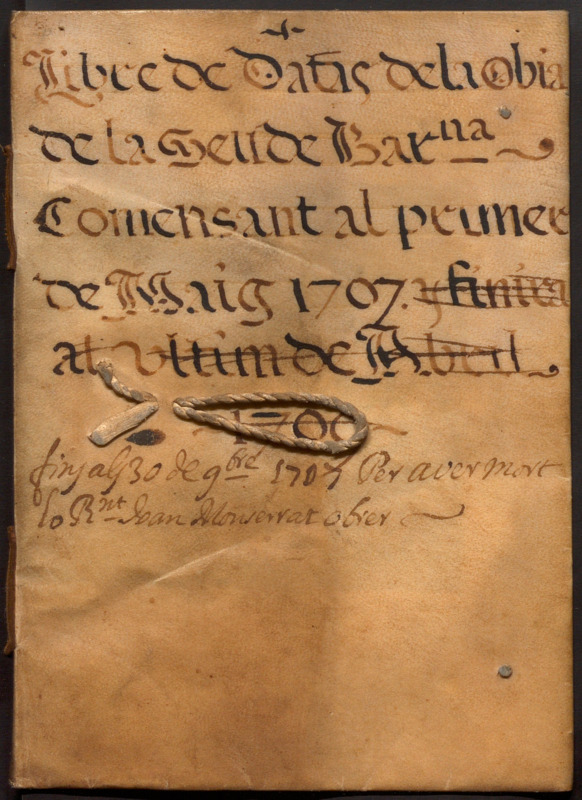 Libre de Datas de la Obia
de la Seu de Barⁿᵃ
Comensant al primer
de Maig 1707. y finira
al ultim de Abril
170
finj als 30 de 9bre 1707 Per aver mort
lo Rnt Joan Monserrat obrer